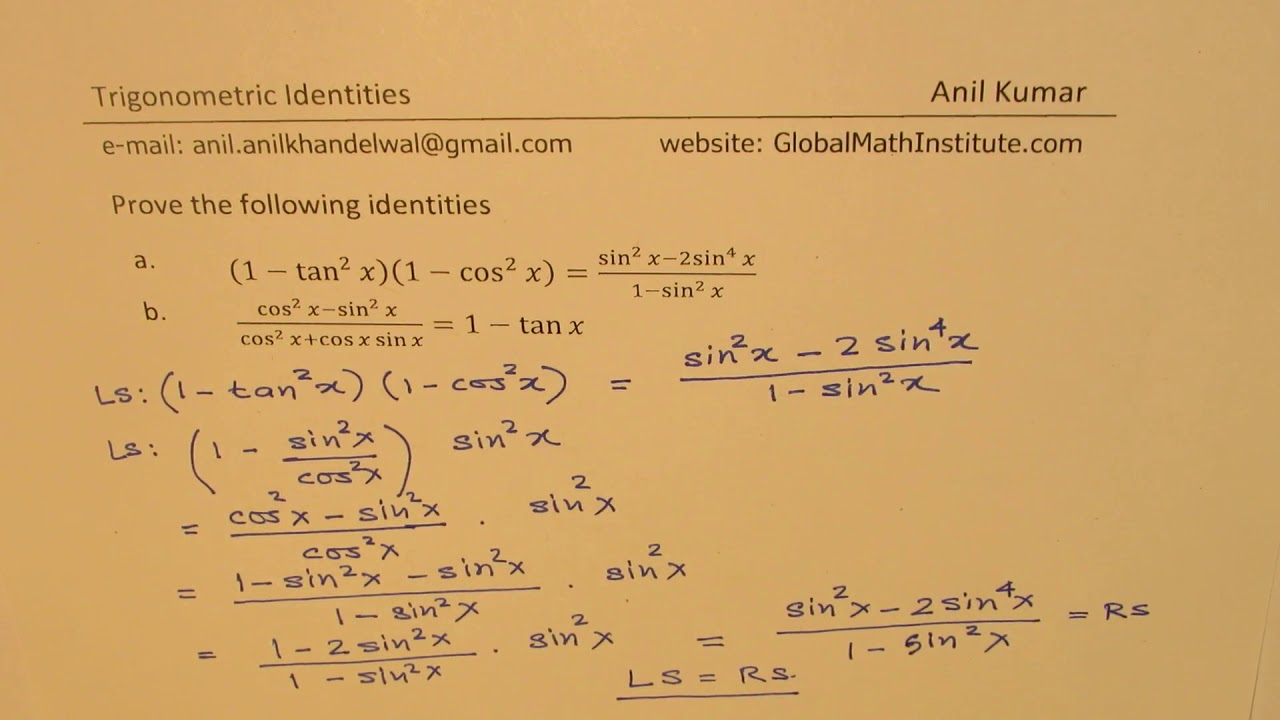 Trigonometric Identities Anil Kumar
e-mail: anil.anilkhandelwal@gmail.com website: GlobalMathInstitute.com
Prove the following identities
a. (1 − tan² x)(1 − cos² x) = (sin² x−2sin⁴ x)/(1−sin² x)
b. (cos² x−sin² x)/(cos² x+cos x sin x) = 1 − tan x
LS: (1 - tan²x) (1 - cos²x) = (sin²x - 2 sin⁴x)/(1 - sin²x)
LS: (1 - sin²x/cos²x) sin²x
= (cos²x - sin²x)/(cos²x) . sin²x
= (1 - sin²x - sin²x)/(1 - sin²x) . sin²x
= (1 - 2 sin²x)/(1 - sin²x) . sin²x = (sin²x - 2 sin⁴x)/(1 - sin²x) = RS
LS = RS.